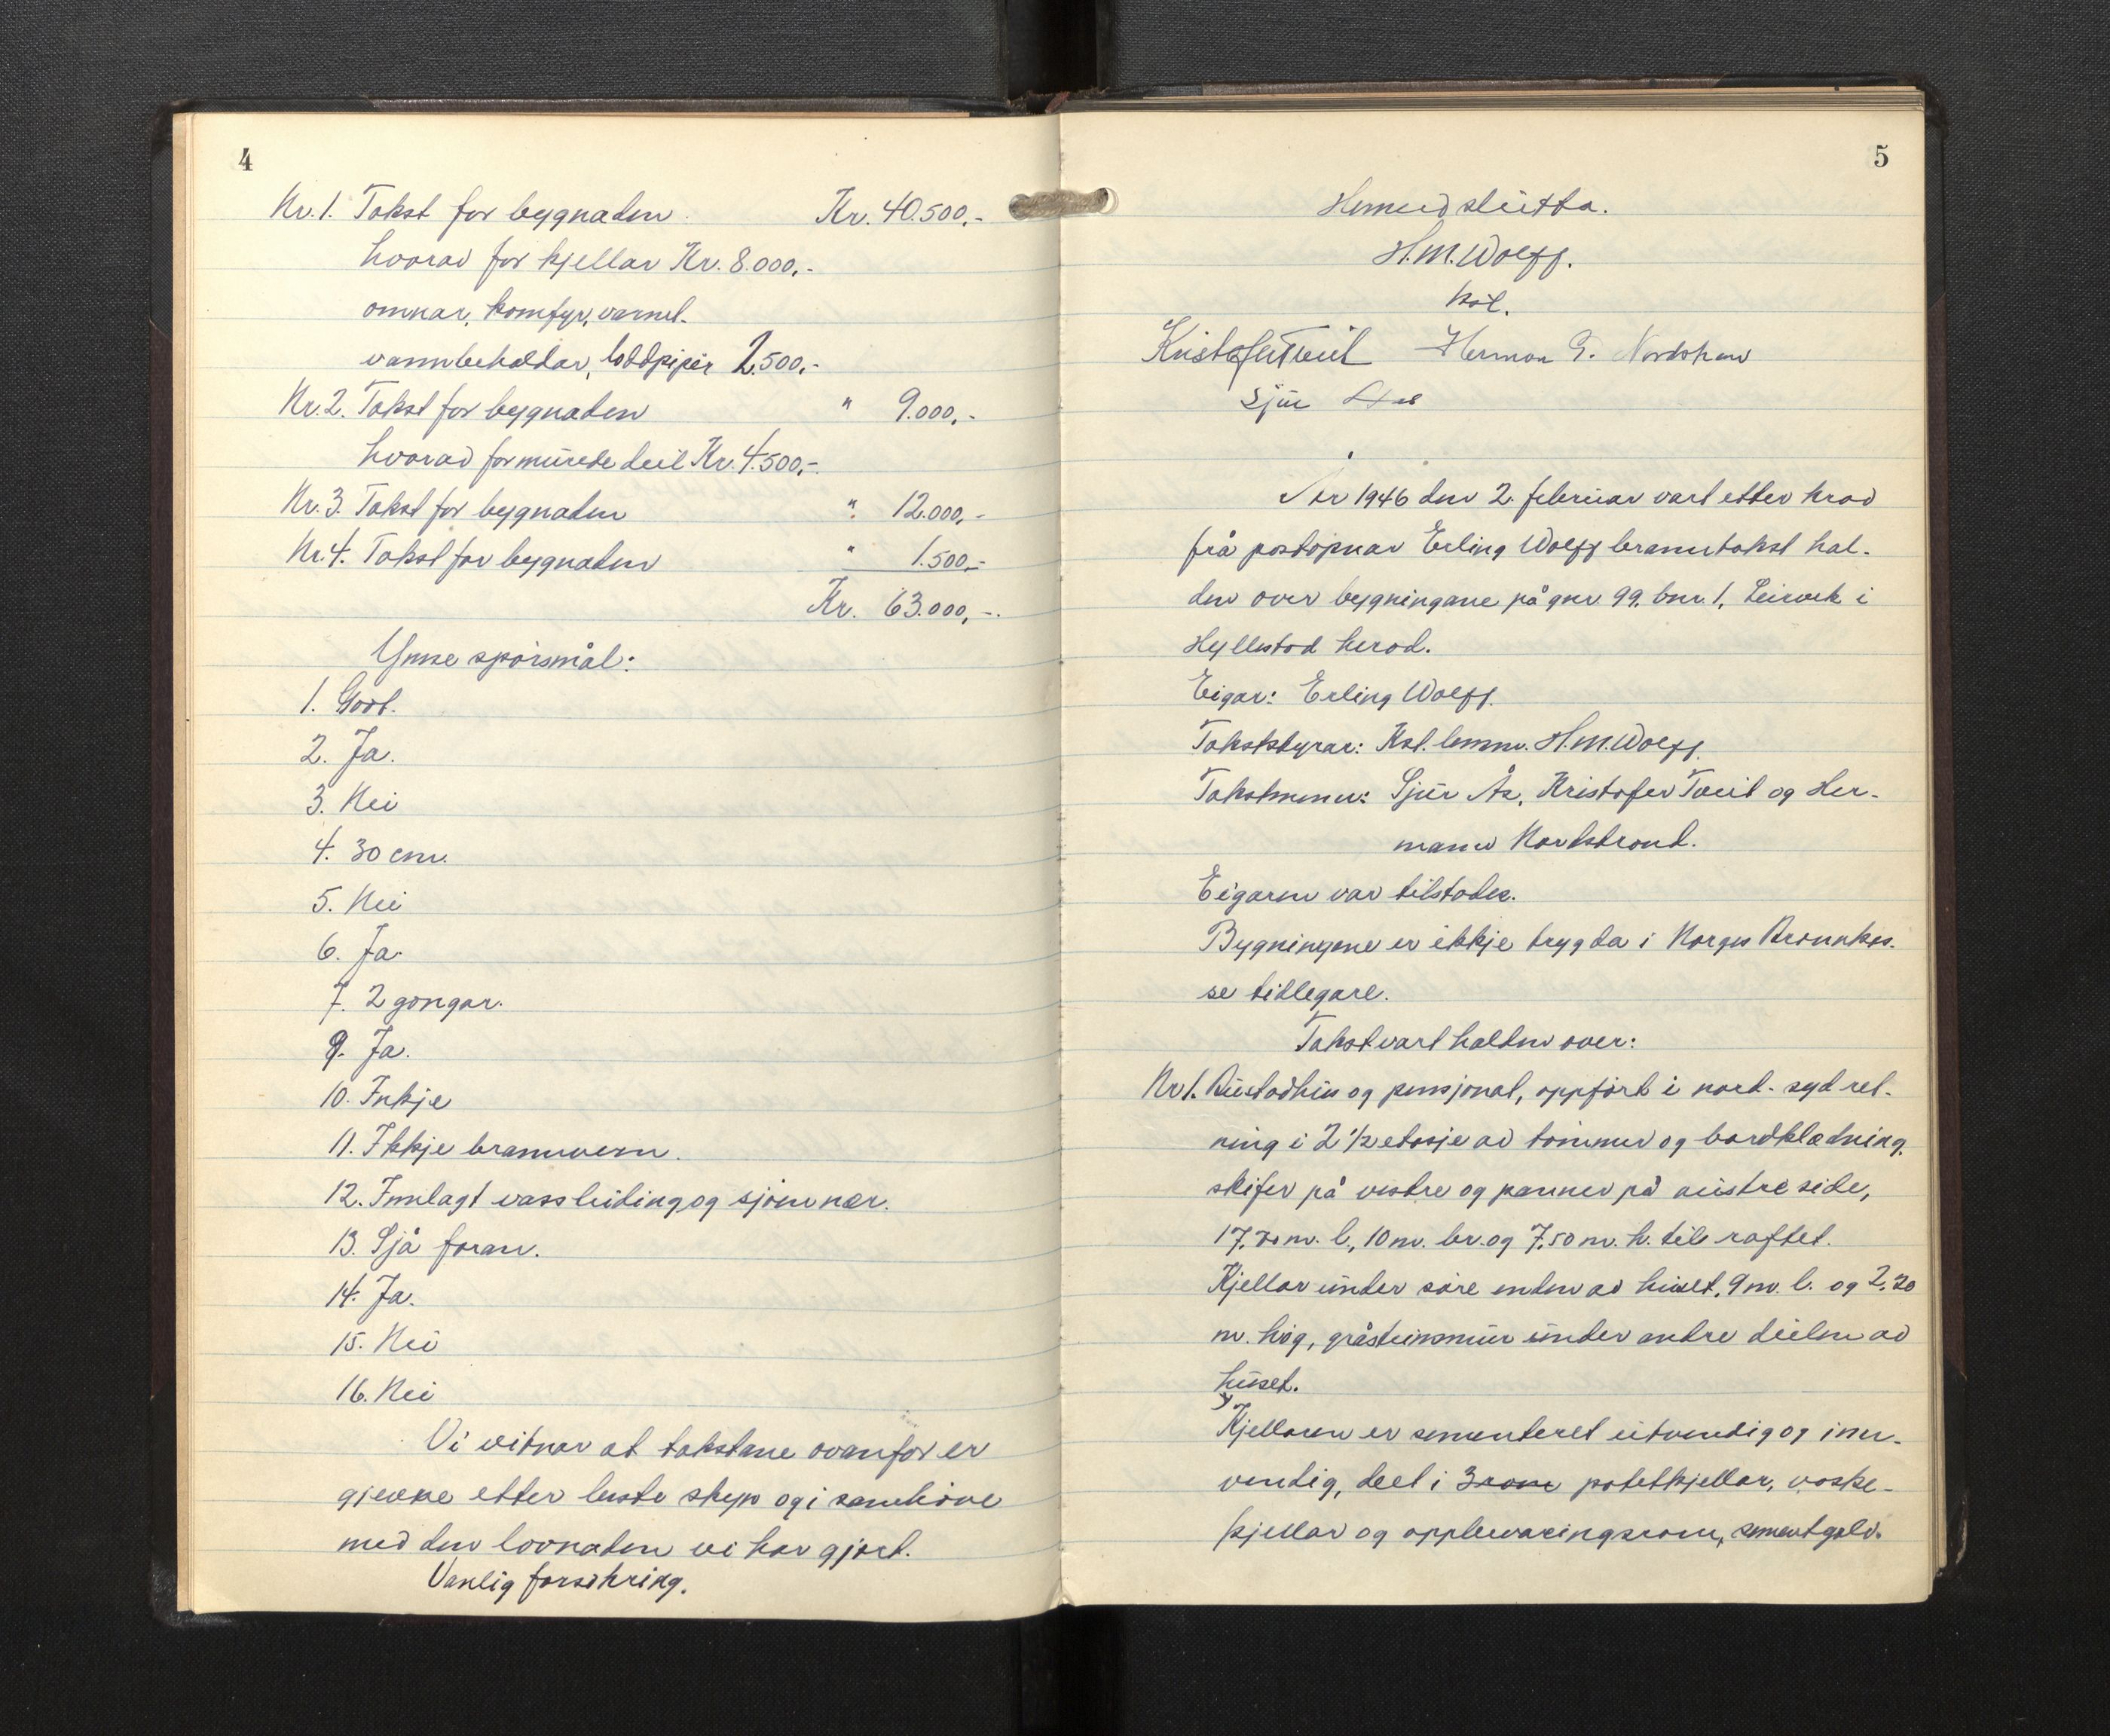 4
Nr. 1. Takst for bygnaden Kr. 40.500,-
hvorav for kjellar Kr. 8.000,-
omnar, komfyr, varmel.
vannbeholdar, loddpipir 2.500,-
Nr. 2. Takst for bygnaden " 9.000,-
hvorav for murede deil Kr. 4.500,-
Nr. 3. Takst for bygnaden " 12.000,-
Nr. 4. Takst for bygnaden " 1.500,-
Kr. 63.000,-.
Ymse spørsmål:
1. Godt.
2. Ja.
3. Nei
4. 30 cm.
5. Nei
6. Ja.
7. 2 gongar.
9. Ja.
10. Inkje
11. Ikkje brannvern.
12. Innlagt vassleiding og sjøen nær.
13. Sjå foran.
14. Ja.
15. Nei
16. Nei
Vi vitnar at takstane ovanfor er
gjevne etter beste skyn og i samhøve
med den lovnaden vi har gjort.
Vanlig forsikring.
5
Hermed slutta.
H.M. Wolff.
kst.
Kristofer Tveit Herman G. Nordstran
Sjur Aas
År 1946 den 2. februar vart etter krav
frå postopnar Erling Wolff branntakst hal-
den over bygningane på gnr 99, bnr. 1, Leirvik i
Hyllestad herad.
Eigar: Erling Wolff.
Takststyrar: Kst. lensm. H.M. Wolff.
Takstmenn: Sjur Ås, Kristofer Tveit og Her-
mann Nordstrand.
Eigaren var tilstades.
Bygningene er ikkje trygda i Norges Brannkas-
se tidlegare.
Takst vart halden over:
Nr 1. Bustadhus og pensjonat, oppført i nord-syd ret-
ning i 2 1/2 etasje av tømmer og bordklædning,
skifer på vestre og panner på austre side,
17,70 m. l., 10 m. br. og 7,50 m. h. til raftet.
Kjellar under søre enden av huset, 9 m. l. og 2,20
m. høg, gråsteinsmur under andre deilen av
huset.
Kjellaren er sementeret utvendig og inn-
vendig, delt i 3 rom potetkjellar, vaske-
kjellar og opplevaringsrom, sementgolv.